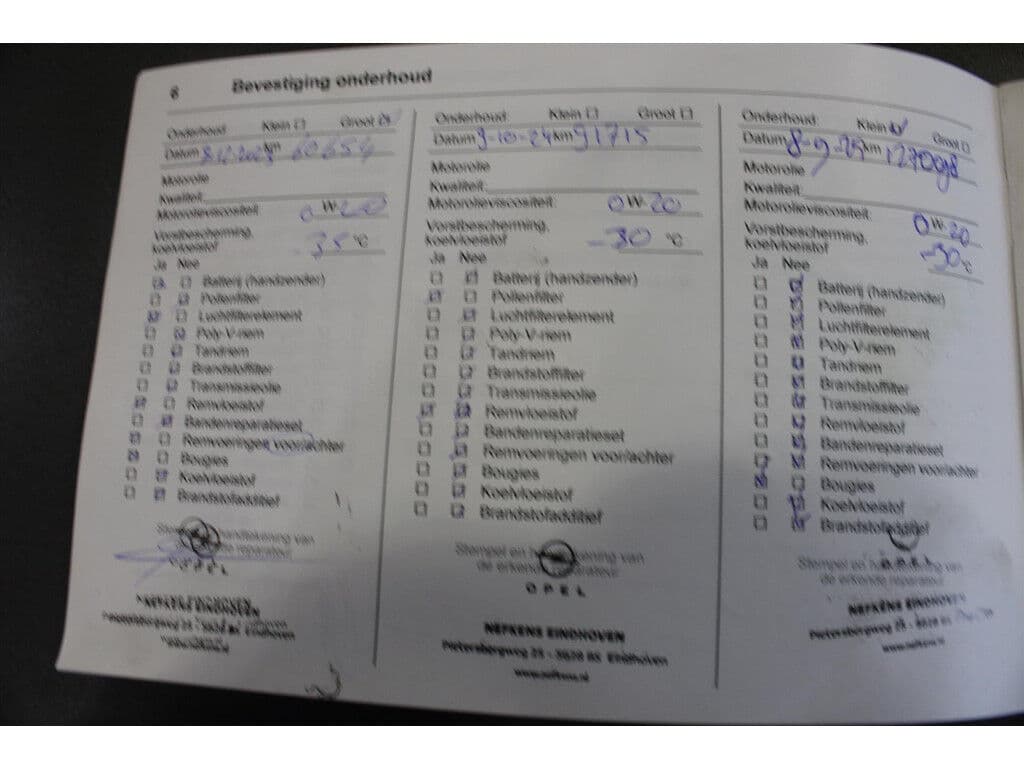 6 Bevestiging onderhoud
Onderhoud Klein Groot
Datum 8-12-2023 km 60654
Motorolie
Kwaliteit
Motorolieviscositeit 0 W 20
Vorstbescherming,
koelvloeistof -35 °C
Ja Nee
Batterij (handzender)
Pollenfilter
Luchtfilterelement
Poly-V-riem
Tandriem
Brandstoffilter
Transmissieolie
Remvloeistof
Bandenreparatieset
Remvoeringen voor/achter
Bougies
Koelvloeistof
Brandstofadditief
Stempel en handtekening van
de erkende reparateur
OPEL
NEFKENS EINDHOVEN
Pietersbergweg 25 - 5628 BS Eindhoven
www.nefkens.nl
Onderhoud Klein Groot
Datum 9-10-24 km 91715
Motorolie
Kwaliteit
Motorolieviscositeit 0 W 20
Vorstbescherming,
koelvloeistof -30 °C
Ja Nee
Batterij (handzender)
Pollenfilter
Luchtfilterelement
Poly-V-riem
Tandriem
Brandstoffilter
Transmissieolie
Remvloeistof
Bandenreparatieset
Remvoeringen voor/achter
Bougies
Koelvloeistof
Brandstofadditief
Stempel en handtekening van
de erkende reparateur
OPEL
NEFKENS EINDHOVEN
Pietersbergweg 25 - 5628 BS Eindhoven
www.nefkens.nl
Onderhoud Klein Groot
Datum 8-9-25 km 127098
Motorolie
Kwaliteit
Motorolieviscositeit 0 W 20
Vorstbescherming,
koelvloeistof -30 °C
Ja Nee
Batterij (handzender)
Pollenfilter
Luchtfilterelement
Poly-V-riem
Tandriem
Brandstoffilter
Transmissieolie
Remvloeistof
Bandenreparatieset
Remvoeringen voor/achter
Bougies
Koelvloeistof
Brandstofadditief
Stempel en handtekening van
de erkende reparateur
OPEL
NEFKENS EINDHOVEN
Pietersbergweg 25 - 5628 BS
www.nefkens.nl